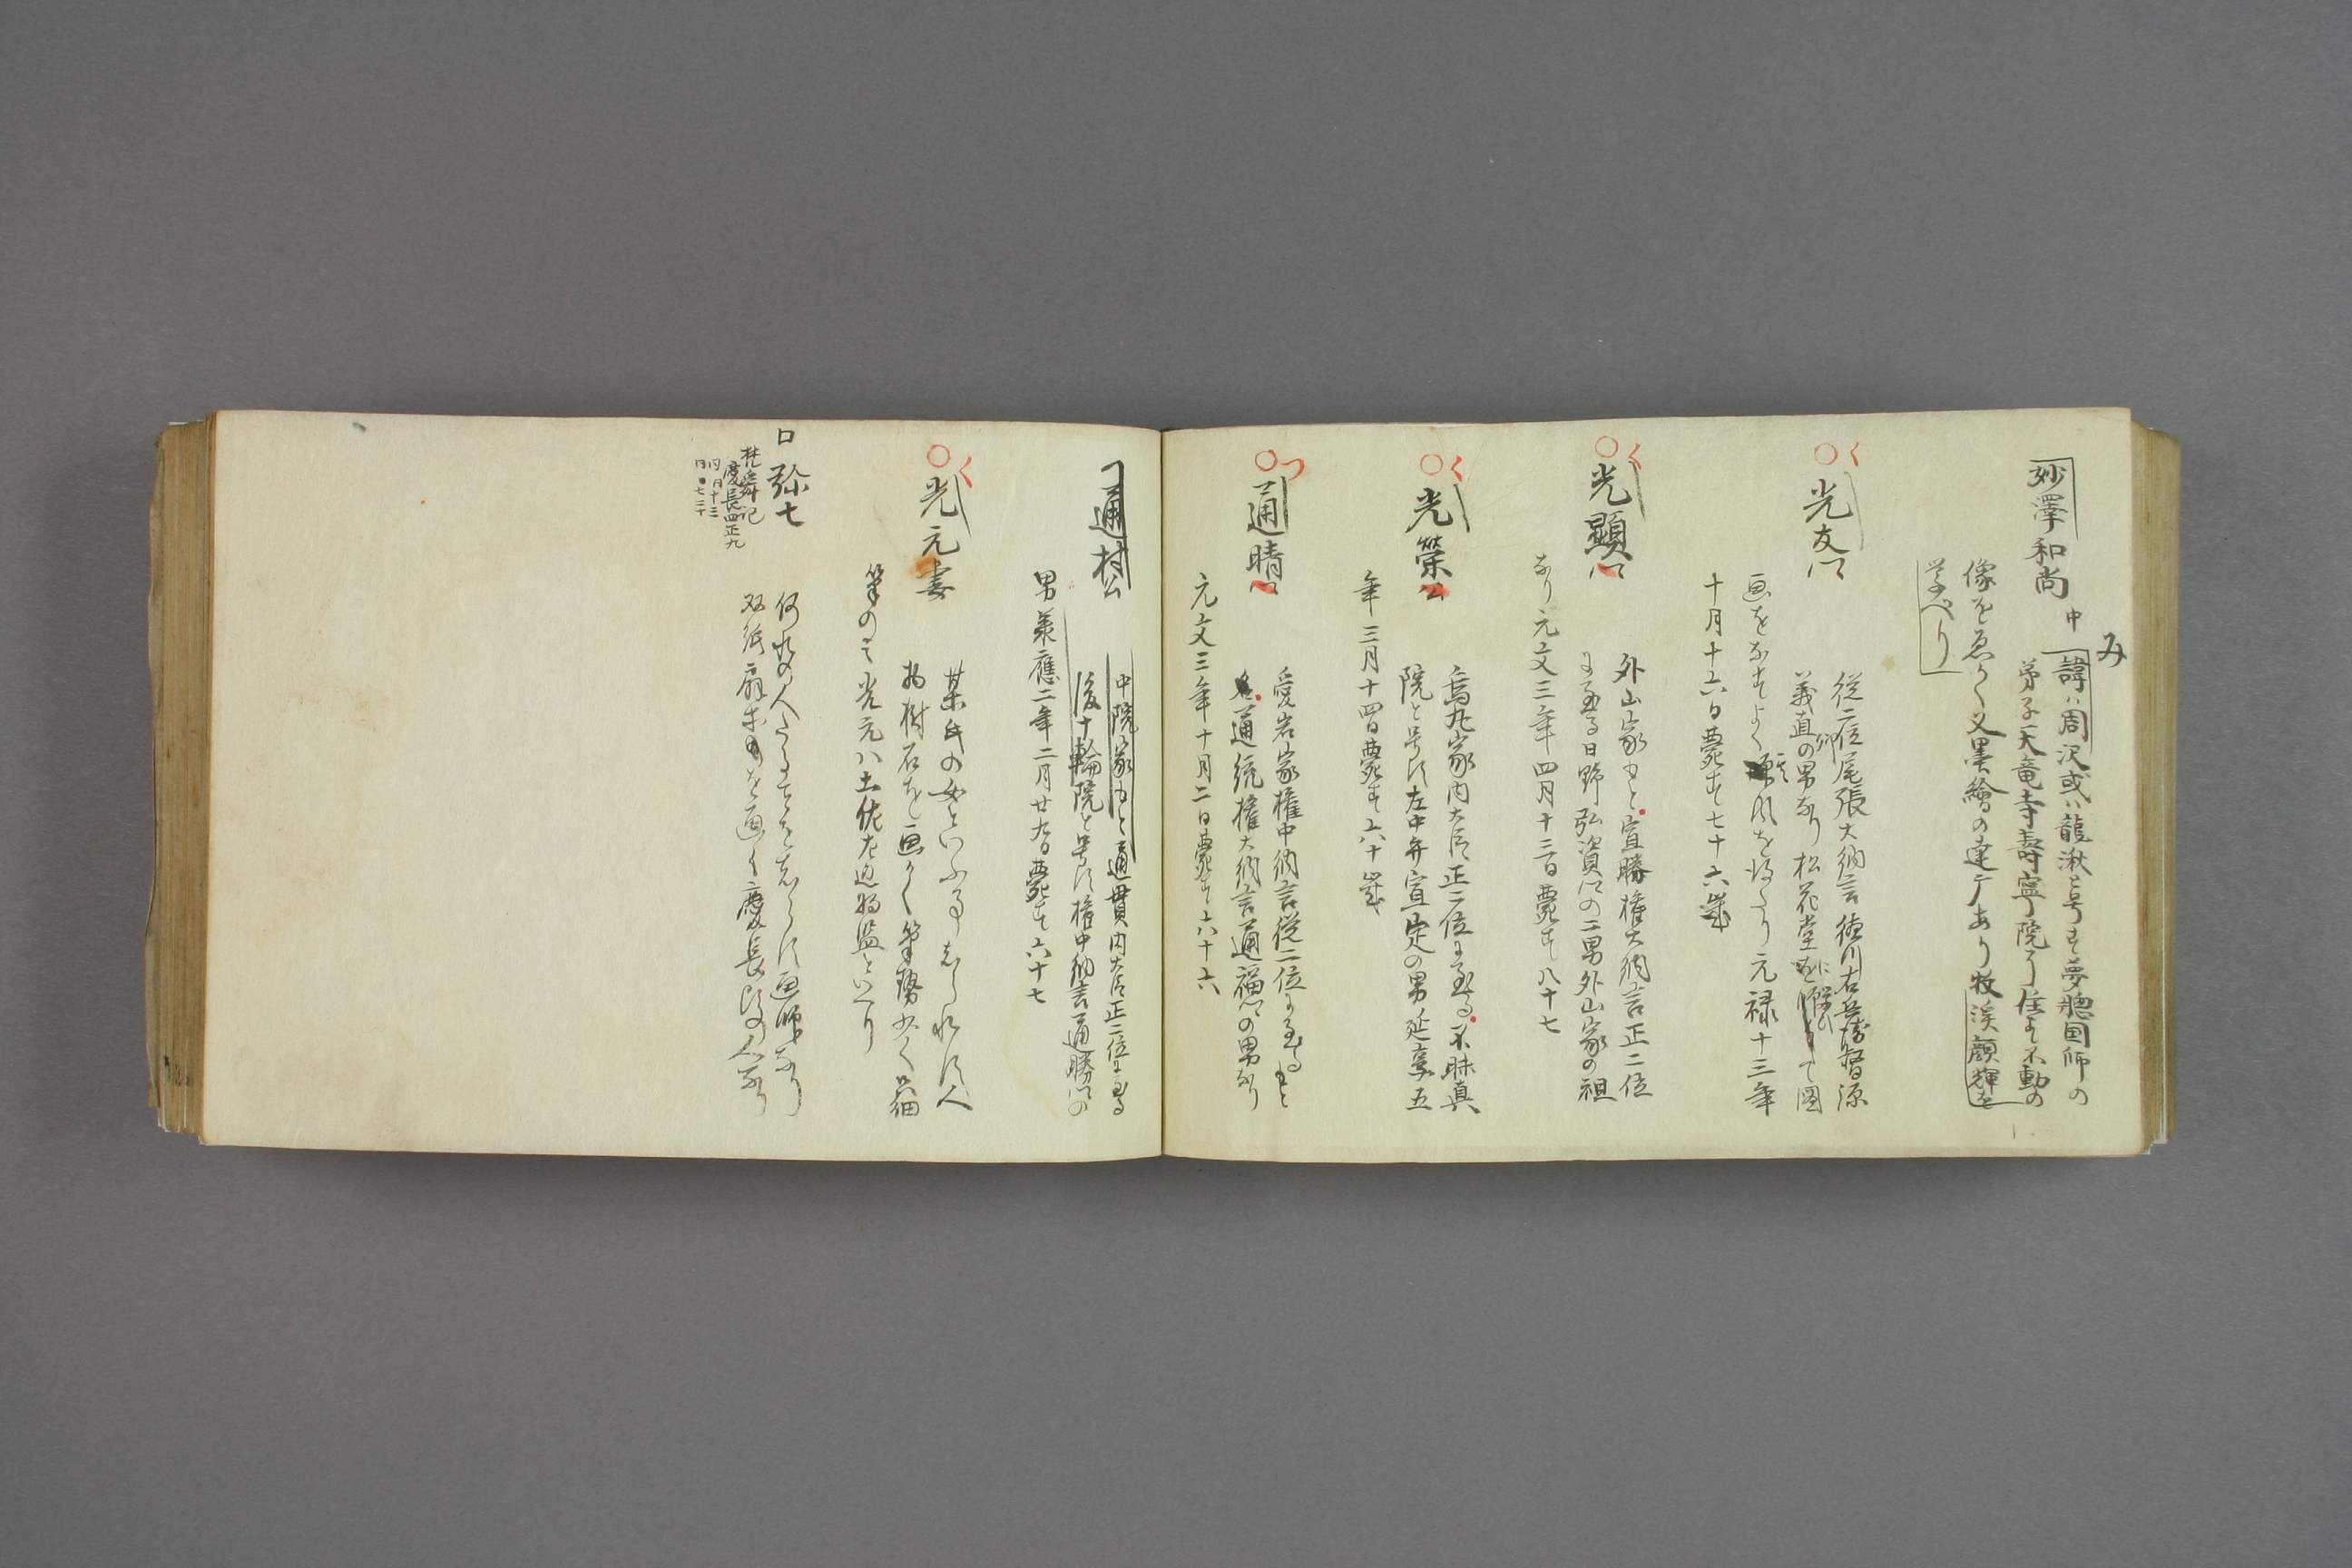 み
妙澤和尚 中
諱ハ周沢或ハ龍湫と号す夢窓国師の
弟子天竜寺壽寧院に住す不動の
像をゑかく又墨繪の達广あり牧溪顔輝を
学べり
く
○光友卿
従二位尾張大納言徳川右兵衛督源
義直卿の男なり松花堂に傚ひて圖
画をなすよく其風を得たり元禄十三年
十月十六日薨す七十六歳
く
○光顯卿
外山家もと宣勝権大納言正二位
に至る日野弘資卿の二男外山家の祖
なり元文三年四月十三日薨す八十七
く
○光榮公
烏丸家内大臣正二位に至る不昧真
院と号す左中弁宣定の男延享五
年三月十四日薨す六十歳
つ
○通晴卿
愛宕家権中納言従二位に至るもと
通統権大納言通福卿の男なり
元文三年十月二日薨す六十六
通村公
中院家もと通貫内大臣正二位に至る
後十輪院と号す権中納言通勝卿の
男承應二年二月廿九日薨す六十七
く
○光元妻
某氏の女といふ事しられす人
物樹石を画かく筆勢少く只細
筆のみ光元ハ土佐左近将監といへり
口 弥七
梵舜記
慶長四正九
同 月十三
同 七二十
何れの人たる事をしらす画師なり
双紙扇等を画く慶長頃の人なり